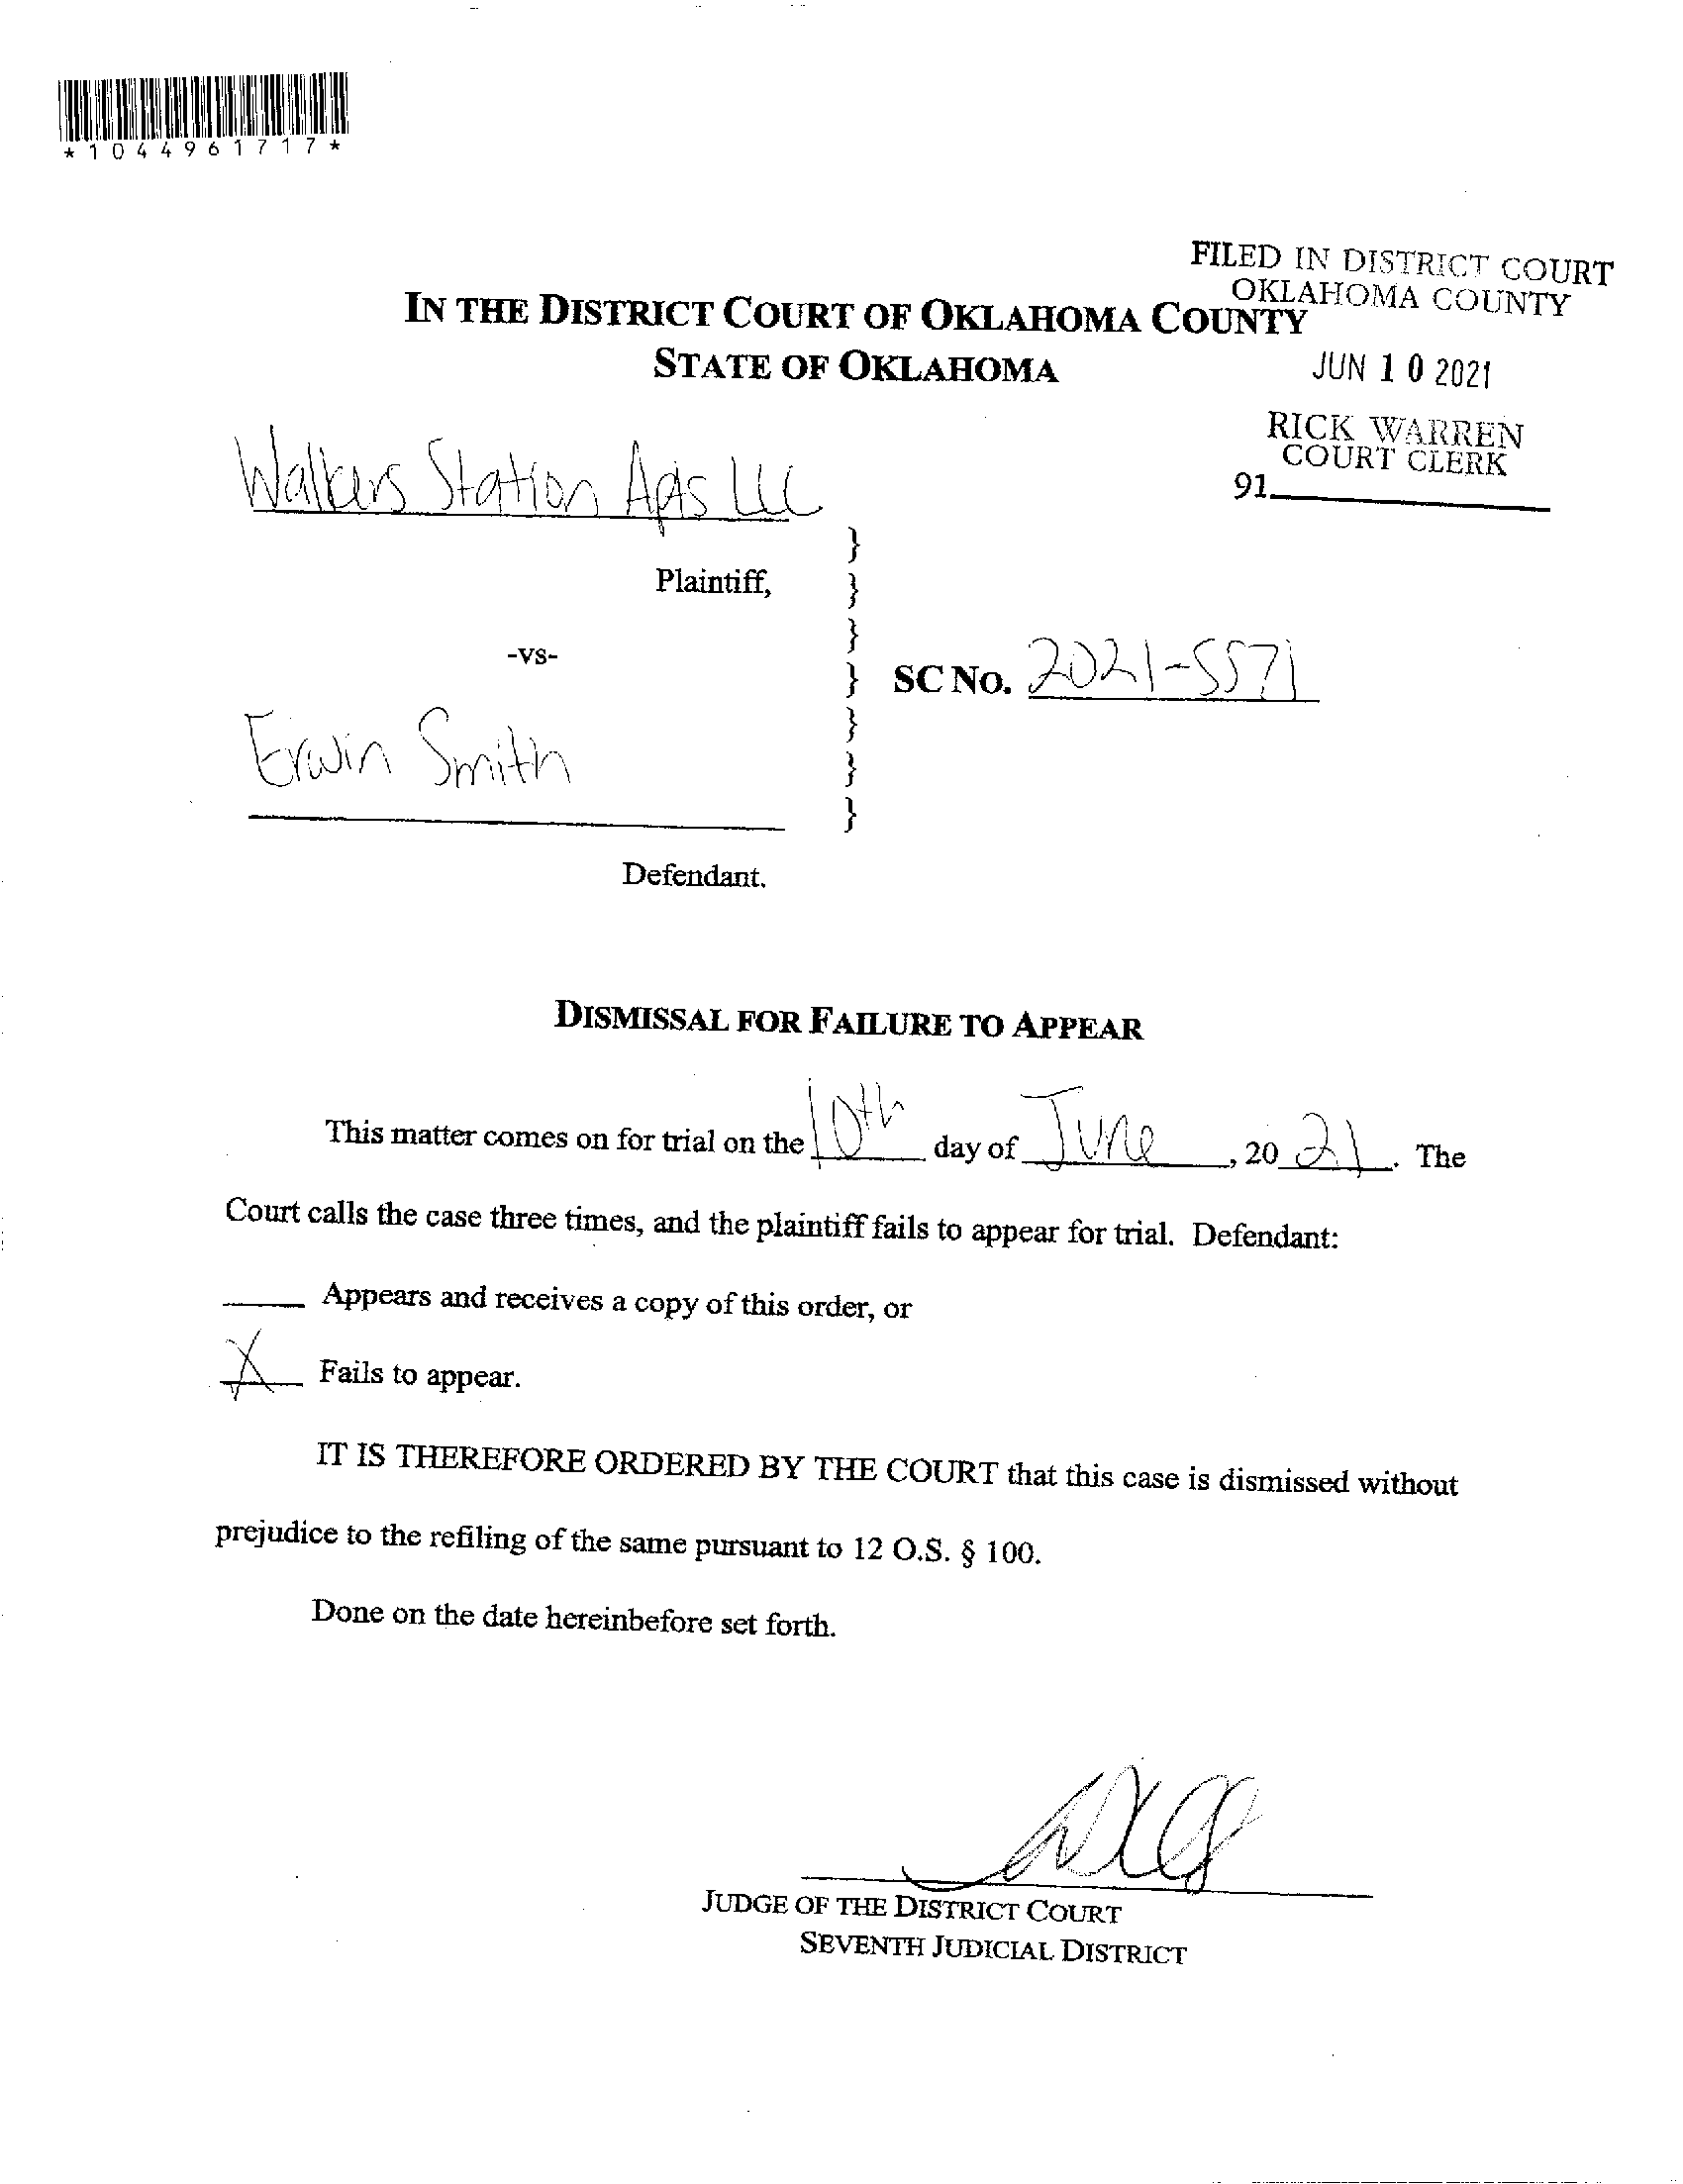 *1044961717*
FILED IN DISTRICT COURT
OKLAHOMA COUNTY
IN THE DISTRICT COURT OF OKLAHOMA COUNTY
STATE OF OKLAHOMA
JUN 10 2021
RICK WARREN
COURT CLERK
91
Walkers Station Apts LLC
Plaintiff,
-vs-
SC NO. 2021-5571
Erwin Smith
Defendant.
DISMISSAL FOR FAILURE TO APPEAR
This matter comes on for trial on the 10th day of June, 2021. The
Court calls the case three times, and the plaintiff fails to appear for trial. Defendant:
Appears and receives a copy of this order, or
X Fails to appear.
IT IS THEREFORE ORDERED BY THE COURT that this case is dismissed without
prejudice to the refiling of the same pursuant to 12 O.S. § 100.
Done on the date hereinbefore set forth.
JUDGE OF THE DISTRICT COURT
SEVENTH JUDICIAL DISTRICT